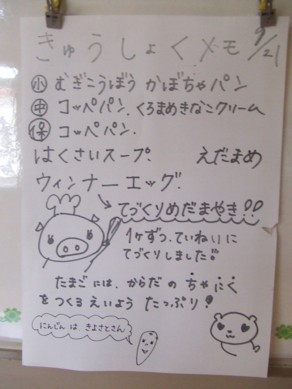 きゅうしょくメモ 9/21
㊥小 むぎこうぼう かぼちゃパン
㊥ コッペパン、くろまめきなこクリーム
保 コッペパン.
はくさいスープ. えだまめ
ウィンナーエッグ.
てづくりめだまやき!!
1ケずつ、ていねいに
てづくりしました。
たまごには、からだの ちゃにく
をつくる えいよう たっぷり!
にんじんは、きよさとさん